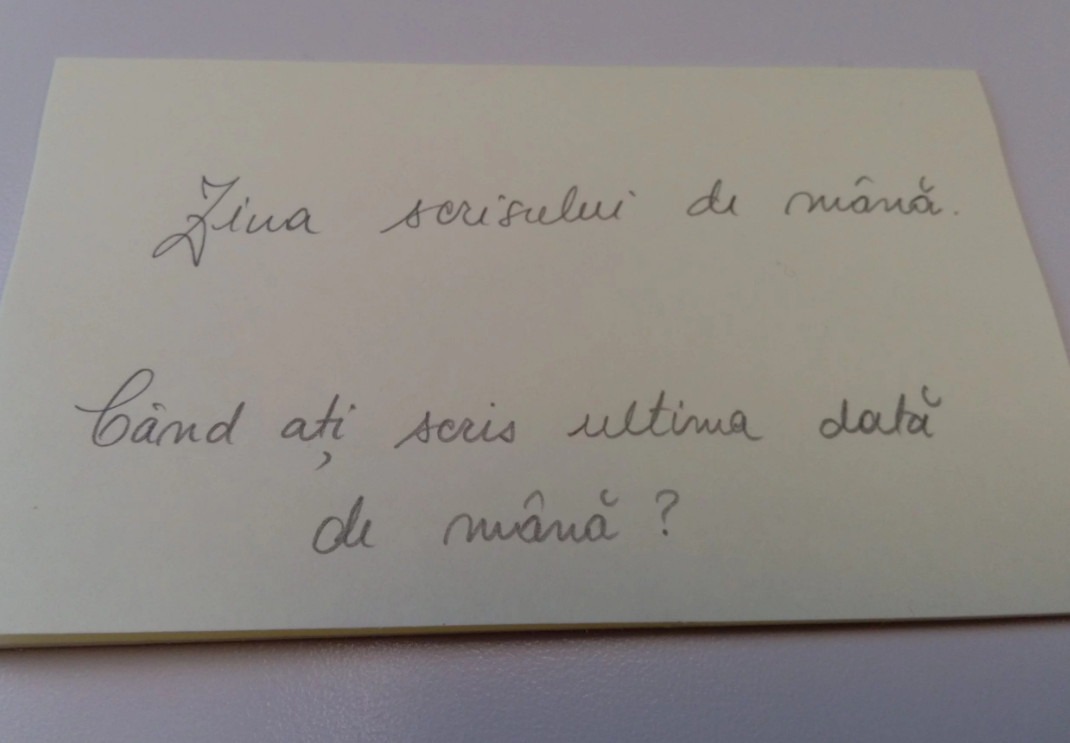 Ziua scrisului de mână.
Când ați scris ultima dată
de mână?